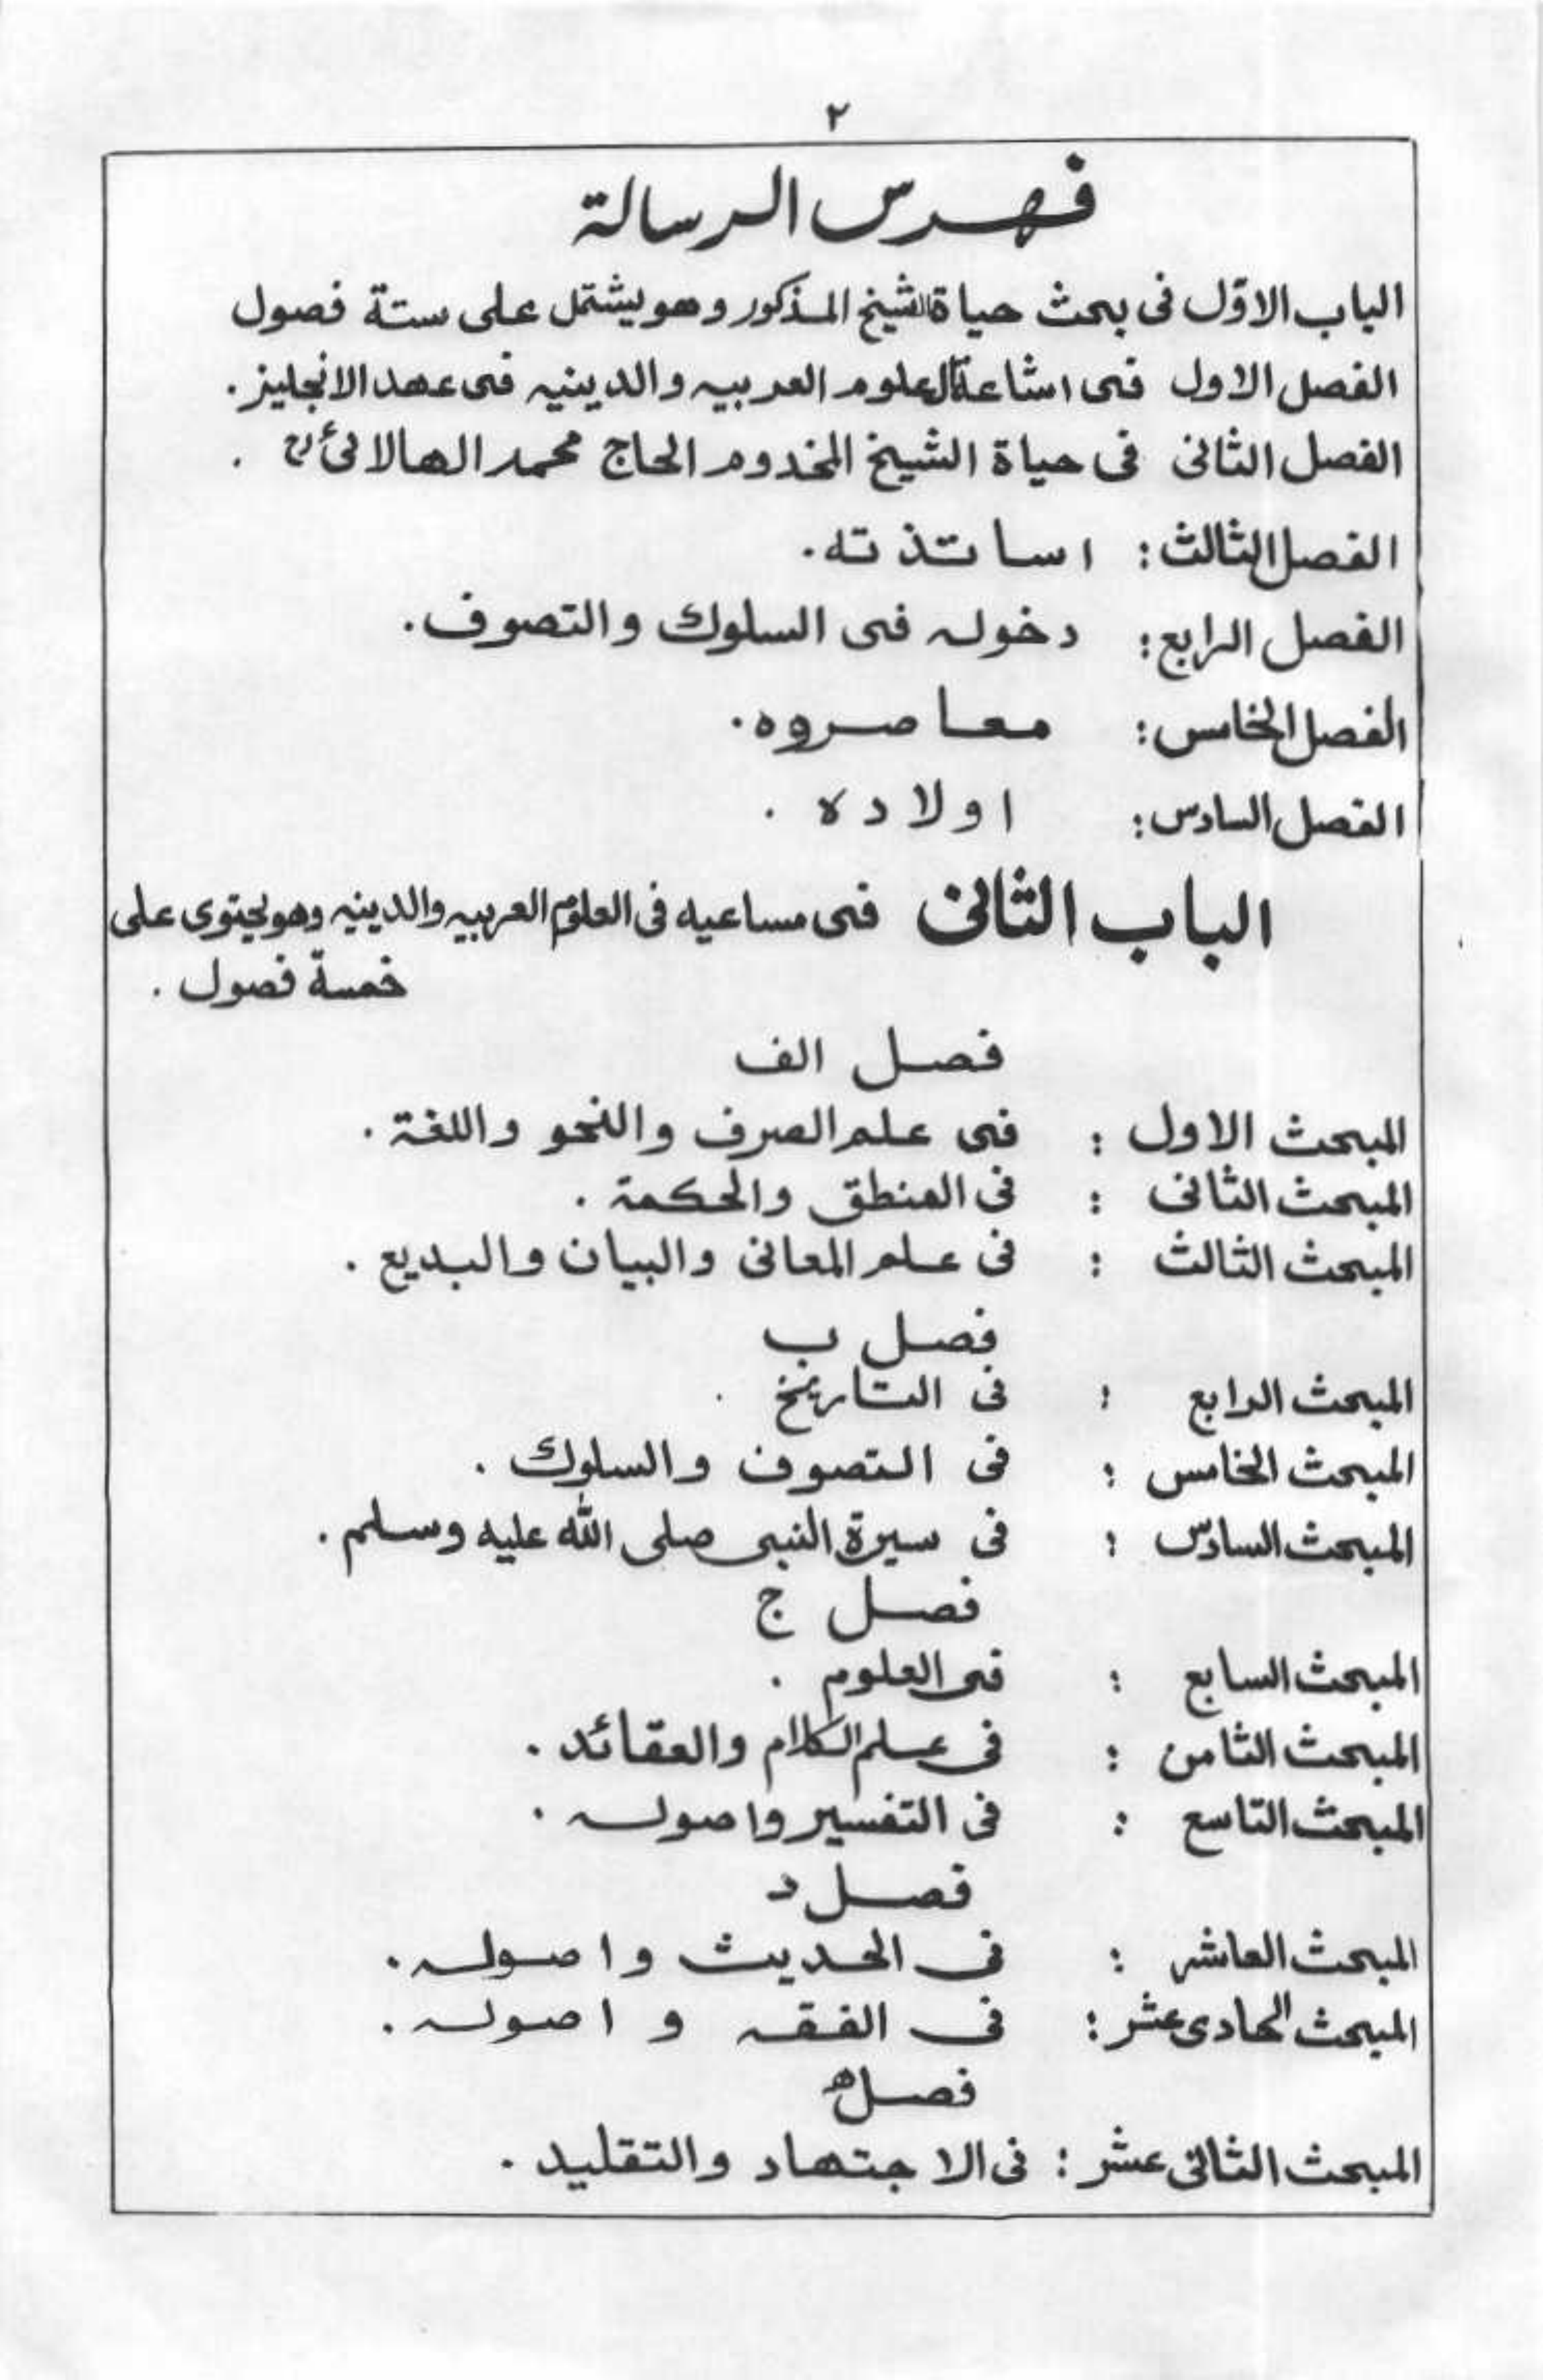 ٢
فهرس الرسالة
الباب الاوّل فى بحث حياة الشيخ المذكور وهو يشتمل على ستة فصول
الفصل الاول فى اشاعة العلوم العربيه والدينيه فى عهد الانجليز.
الفصل الثانى فى حياة الشيخ المخدوم الحاج محمد الهالائى .
الفصل الثالث: اساتذته.
الفصل الرابع: دخوله فى السلوك والتصوف.
الفصل الخامس: معاصروه.
الفصل السادس: اولاده .
الباب الثانى فى مساعيه فى العلوم العربيه والدينيه وهو يحتوى على
خمسة فصول .
فصل الف
المبحث الاول : فى علم الصرف والنحو واللغة .
المبحث الثانى : فى المنطق والحكمة .
المبحث الثالث : فى علم المعانى والبيان والبديع .
فصل ب
المبحث الرابع : فى التاريخ .
المبحث الخامس : فى التصوف والسلوك .
المبحث السادس : فى سيرة النبى صلى الله عليه وسلم .
فصل ج
المبحث السابع : فى العلوم .
المبحث الثامن : فى علم الكلام والعقائد .
المبحث التاسع : فى التفسير واصوله .
فصل د
المبحث العاشر : فى الحديث واصوله .
المبحث الحادى عشر : فى الفقه و اصوله .
فصل ه
المبحث الثانى عشر : فى الاجتهاد والتقليد .